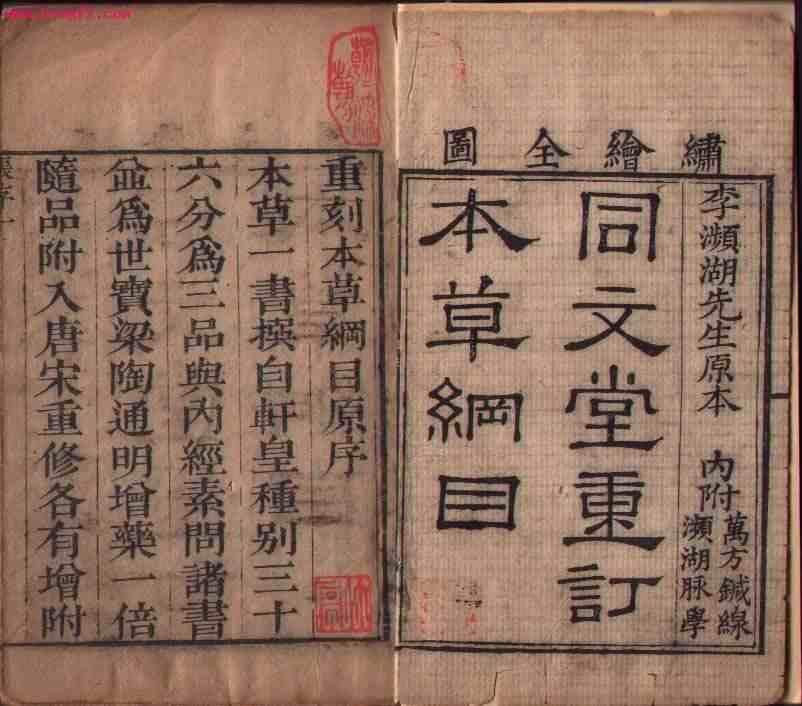 繡繪全圖
李瀕湖先生原本 內附萬方鍼線瀕湖脉學
同文堂重訂
本草綱目
重刻本草綱目原序
本草一書撰自軒皇種别三十
六分爲三品與內經素問諸書
並爲世寶梁陶通明增藥一倍
隨品附入唐宋重修各有增附